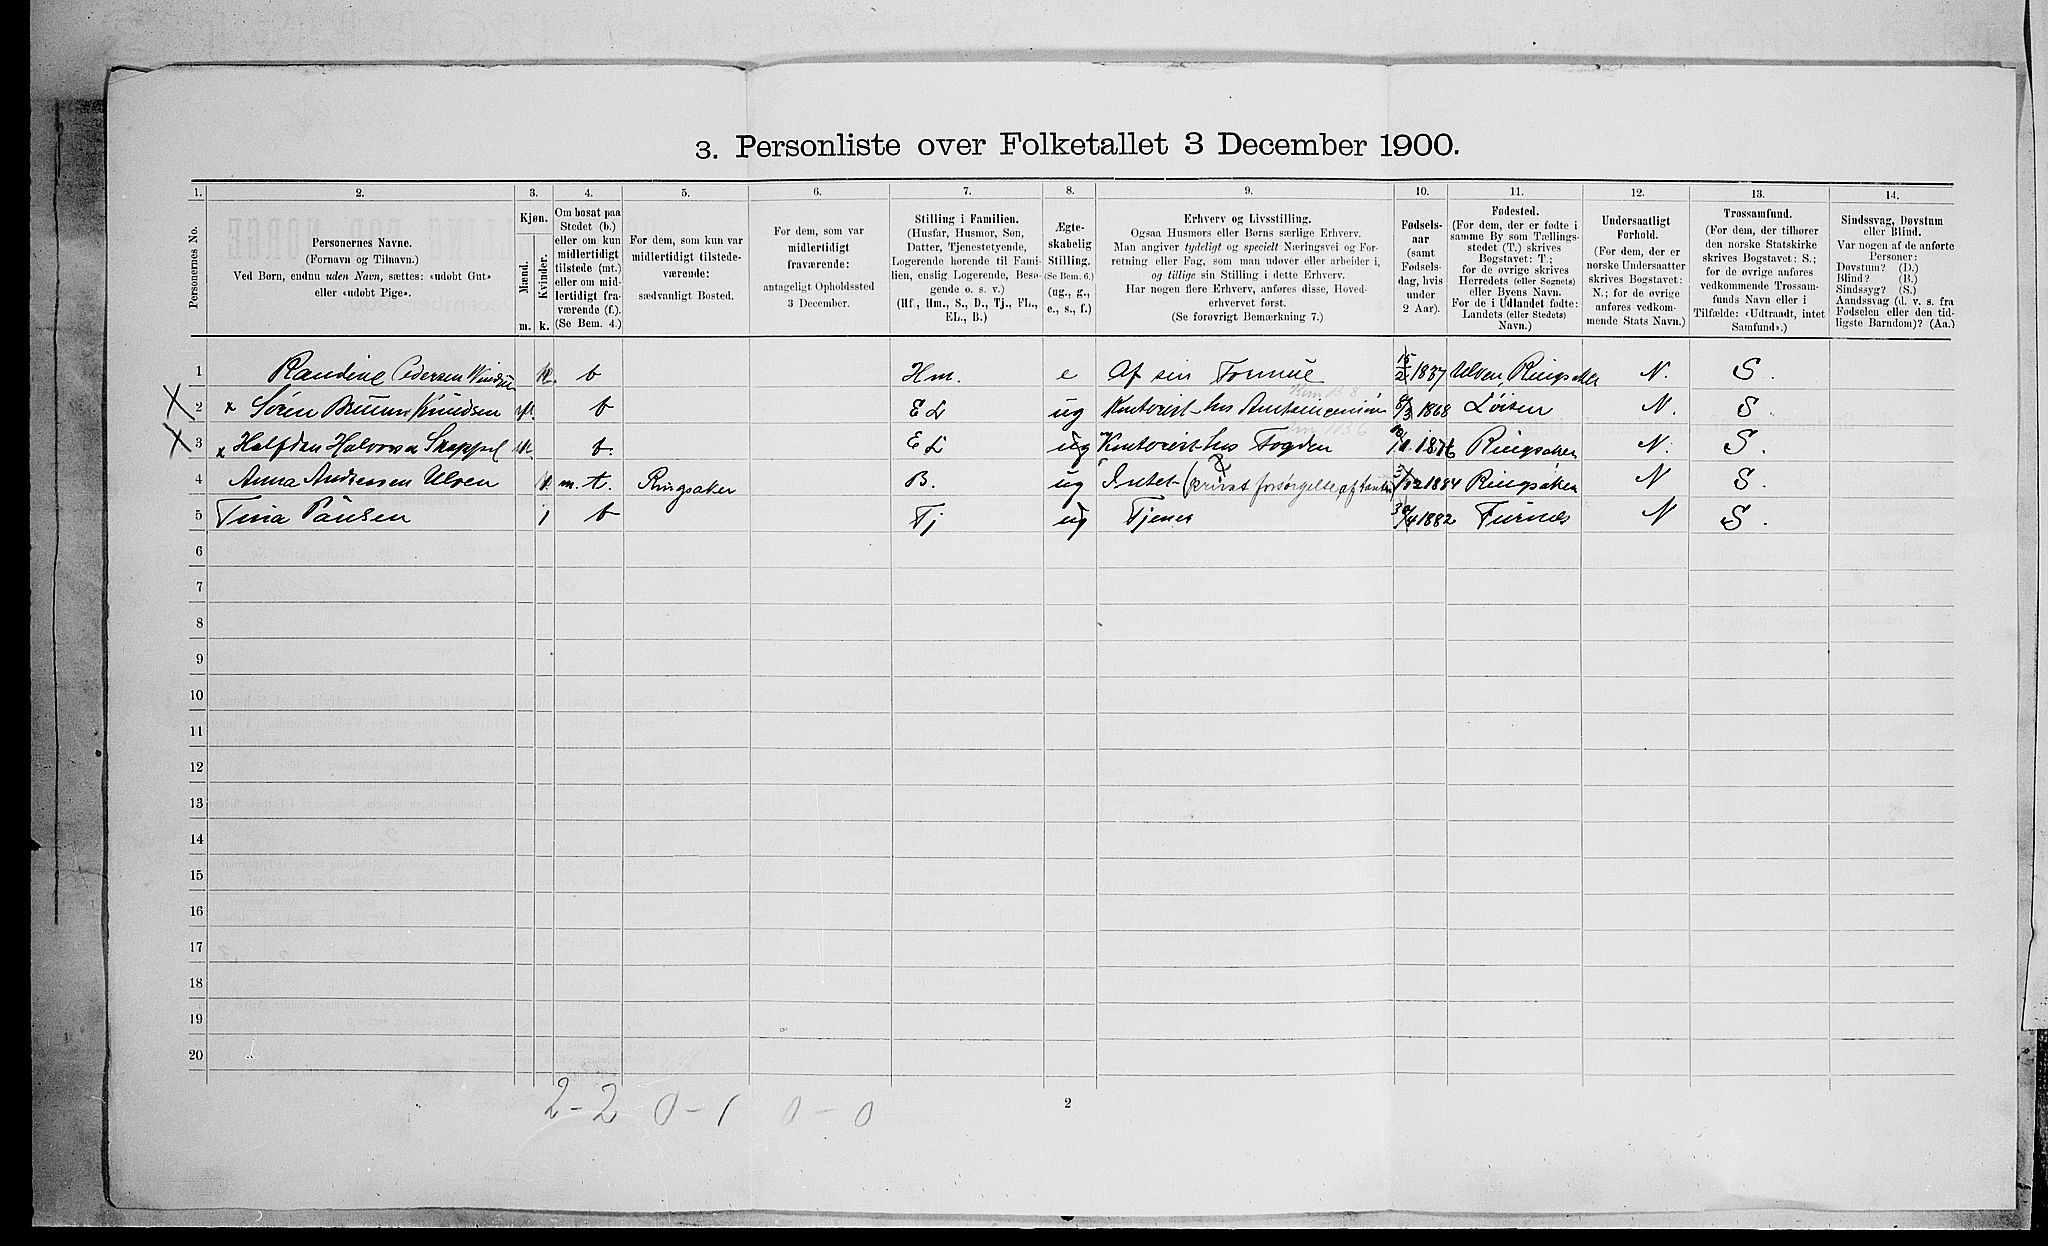 3. Personliste over Folketallet 3 December 1900.
1. 2. 3. 4. 5. 6. 7. 8. 9. 10. 11. 12. 13. 14.
Personernes No.
Personernes Navne.
(Fornavn og Tilnavn.)
Ved Børn, endnu uden Navn, sættes: «udøbt Gut»
eller «udøbt Pige».
Kjøn.
Mænd.
Kvinder.
m. k.
Om bosat paa
Stedet (b.)
eller om kun
midlertidigt
tilstede (mt.)
eller om mid-
lertidigt fra-
værende (f.).
(Se Bem. 4.)
For dem, som kun var
midlertidigt tilstede-
værende:
sædvanligt Bosted.
For dem, som var
midlertidigt
fraværende:
antageligt Opholdssted
3 December.
Stilling i Familien.
(Husfar, Husmor, Søn,
Datter, Tjenestetyende,
Logerende hørende til Fami-
lien, enslig Logerende, Besø-
gende o. s. v.)
(Hf., Hm., S., D., Tj., FL.,
EL., B.)
Ægte-
skabelig
Stilling.
(Se Bem. 6.)
(ug., g.,
e., s., f.)
Erhverv og Livsstilling.
Ogsaa Husmors eller Børns særlige Erhverv.
Man angiver tydeligt og specielt Næringsvei og For-
retning eller Fag, som man udøver eller arbeider i,
og tillige sin Stilling i dette Erhverv.
Har nogen flere Erhverv, anføres disse, Hoved-
erhvervet først.
(Se forøvrigt Bemærkning 7.)
Fødsels-
aar
(samt
Fødsels-
dag, hvis
under
2 Aar).
Fødested.
(For dem, der er fødte i
samme By som Tællings-
stedet (T.) skrives
Bogstavet: T.;
for de øvrige skrives
Herredets (eller Sognets)
eller Byens Navn.
For de i Udlandet fødte:
Landets (eller Stedets)
Navn.)
Undersaatligt
Forhold.
(For dem, der er
norske Undersaatter
skrives Bogstavet:
N.; for de øvrige
anføres vedkom-
mende Stats Navn.)
Trossamfund.
(For dem, der tilhører
den norske Statskirke
skrives Bogstavet: S.;
for de øvrige anføres
vedkommende Trossam-
funds Navn eller i
Tilfælde: «Udtraadt, intet
Samfund».)
Sindssvag, Døvstum
eller Blind.
Var nogen af de anførte
Personer:
Døvstum? (D.)
Blind? (B.)
Sindssyg? (S.)
Aandssvag (d. v. s. fra
Fødselen eller den tid-
ligste Barndom)? (Aa.)
1 Randine Pedersen k. b Hm. e Af sin Formue 15/2 1837 Ulven, Ringsaker N. S.
2 x Sören Bruun Knudsen m. b EL ug Kontorist hos 1868 Löiten N. S.
3 x Halfdan Halvorsen Skappel m. b. EL ug Kontorist hos Fogden 1876 Ringsaker N. S.
4 Anna Andersen Ulven k. m.t. Ringsaker B. ug Intet (privat forsørgelse af tanten) 3/12 1884 Ringsaker N S.
5 Tina Paulsen 1 b Tj ug Tjener 30/4 1882 Furnæs N S.
6
7
8
9
10
11
12
13
14
15
16
17
18
19
20
2-2 0-1 0-0
2